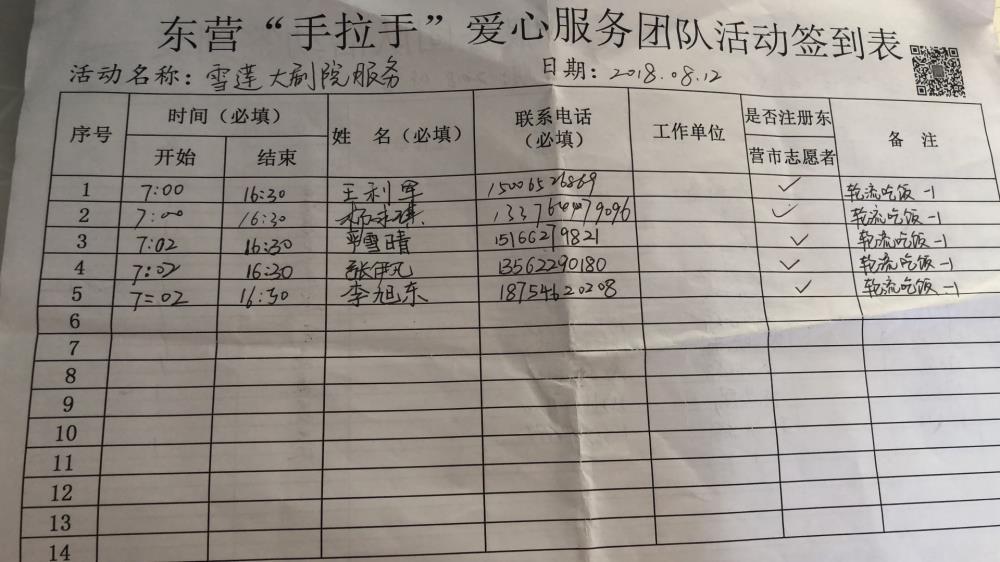 东营“手拉手”爱心服务团队活动签到表
活动名称：雪莲大剧院服务 日期：2018.08.12
序号 时间（必填） 姓 名（必填） 联系电话（必填） 工作单位 是否注册东营市志愿者 备 注
开始 结束
1 7:00 16:30 王利军 15006526869 ✓ 轮流吃饭-1
2 7:00 16:30 ✓ 轮流吃饭-1
3 7:02 16:30 雪晴 15166279821 ✓ 轮流吃饭-1
4 7:02 16:30 张伊凡 13562290180 ✓ 轮流吃饭-1
5 7:02 16:30 李旭东 18754620208 ✓ 轮流吃饭-1
6
7
8
9
10
11
12
13
14